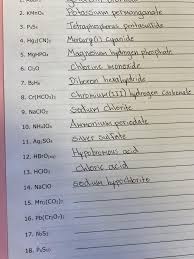 2. KMnO₄ Potassium permanganate
3. P₄S₅ Tetraphosphorus pentasulfide
4. Hg₂(CN)₂ Mercury(I) cyanide
5. MgHPO₄ Magnesium hydrogen phosphate
6. Cl₂O chlorine monoxide
7. B₂H₆ Diboron hexahydride
8. Cr(HCO₃)₃ Chromium(III) hydrogen carbonate
9. NaClO₂ Sodium chlorite
10. NH₄IO₄ Ammonium periodate
11. Ag₂SO₄ Silver sulfate
12. HBrO(aq) Hypobromous acid
13. HClO₃ chloric acid
14. NaClO sodium hypochlorite
15. Mn₂(CO₃)₃
16. Pb(Cr₂O₇)₂
17. NbS₂
18. P₄S₁₀